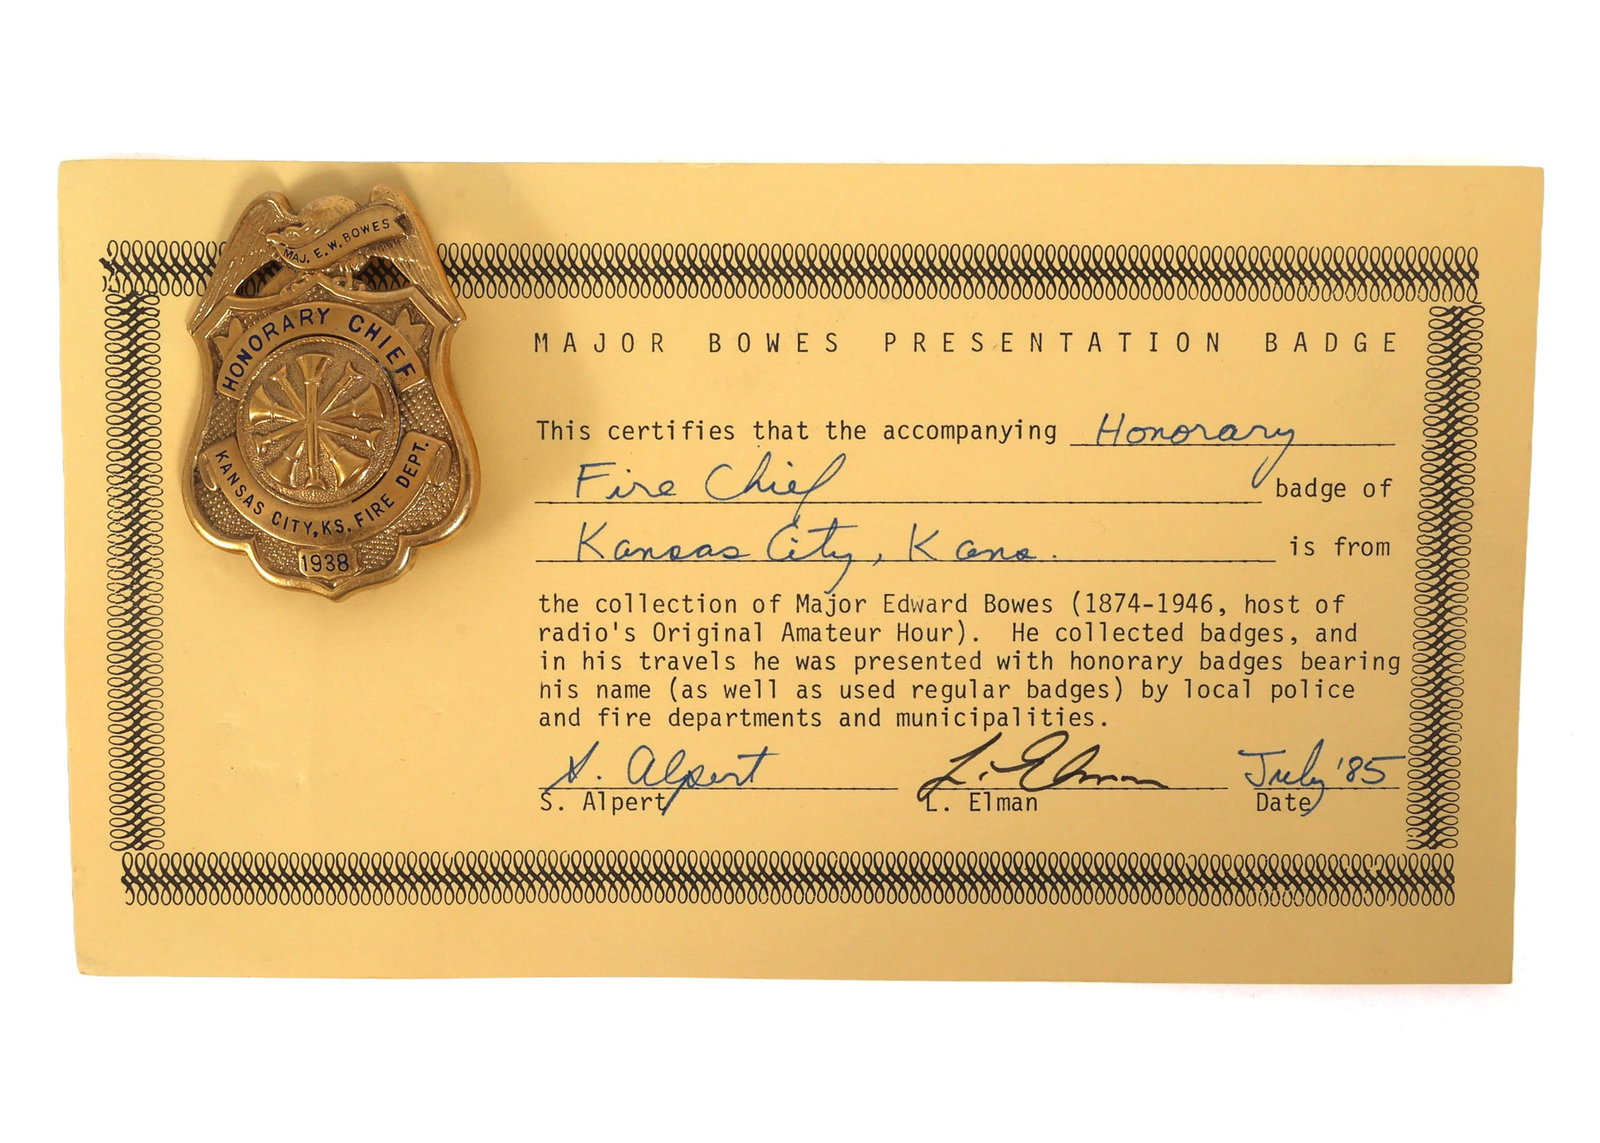 MAJ. E.W. BOWES
HONORARY CHIEF
KANSAS CITY, KS. FIRE DEPT.
1938
MAJOR BOWES PRESENTATION BADGE
This certifies that the accompanying Honorary
Fire Chief badge of
Kansas City, Kans. is from
the collection of Major Edward Bowes (1874-1946, host of
radio's Original Amateur Hour). He collected badges, and
in his travels he was presented with honorary badges bearing
his name (as well as used regular badges) by local police
and fire departments and municipalities.
S. Alpert L. Elman July '85
S. Alpert L. Elman Date